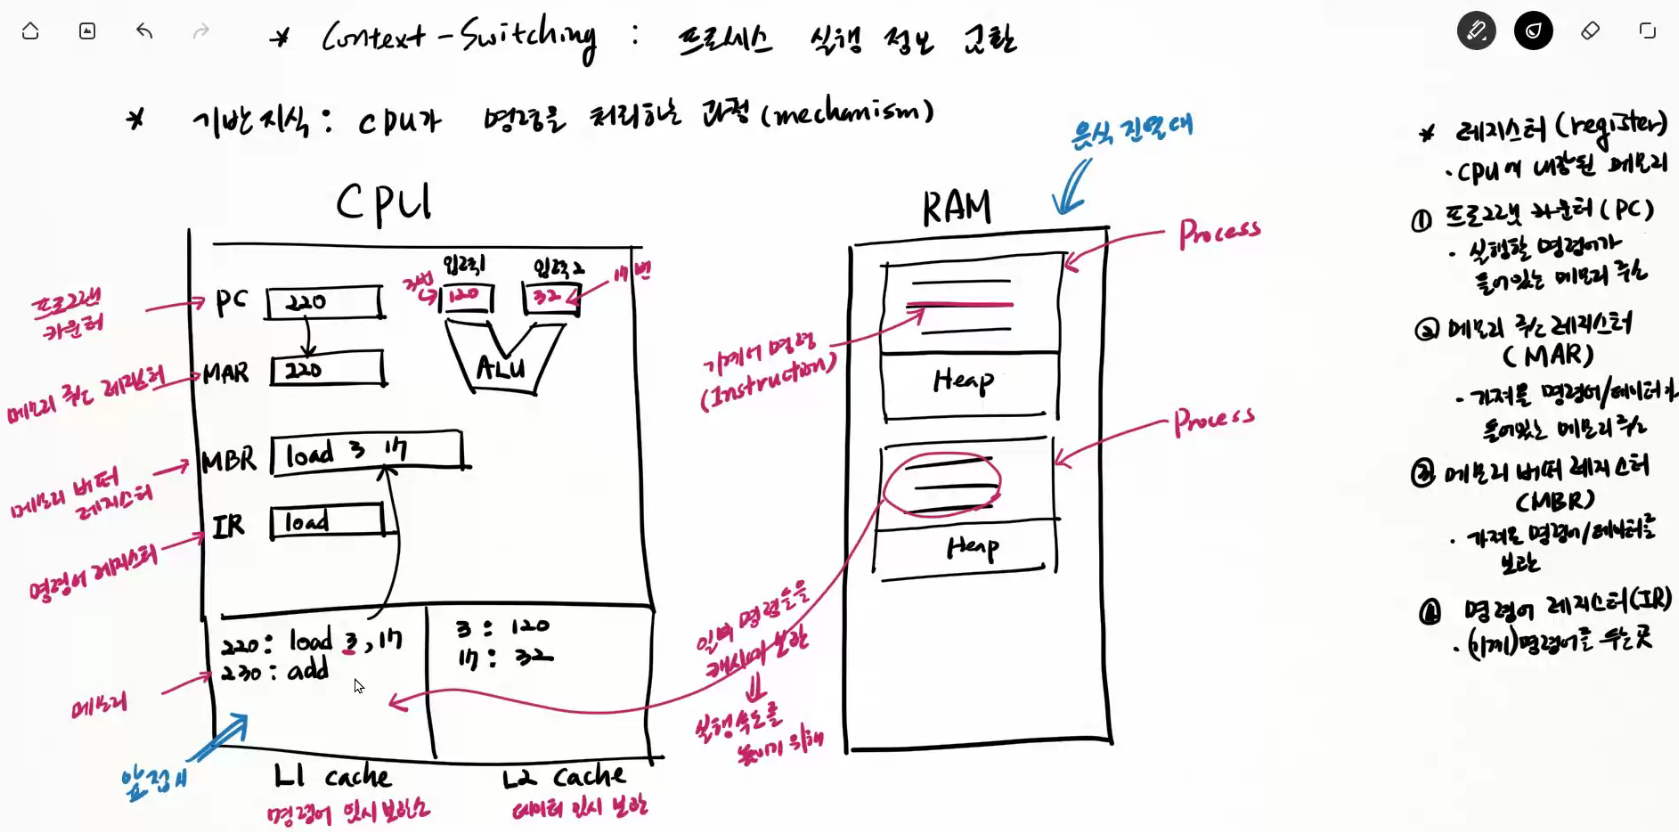 * Context-Switching : 프로세스 실행 정보 교환
* 기반지식 : CPU가 명령을 처리하는 과정(mechanism)
음식 진열대
CPU
RAM
PC 220
MAR 220
MBR load 3 17
IR load
입력1
입력2
3번
120
32
17번
ALU
프로그램
카운터
메모리 주소 레지스터
메모리 버퍼
레지스터
명령어 레지스터
220: load 3,17
230: add
3 : 120
17 : 32
메모리
앞접시
L1 cache
명령어 임시 보관소
L2 cache
데이터 임시 보관
Process
기계어 명령
(Instruction)
Heap
Process
Heap
일부 명령들을
캐시에 보관
실행속도를
높이기 위해
* 레지스터(register)
· CPU에 내장된 메모리
① 프로그램 카운터(PC)
· 실행할 명령어가
들어있는 메모리 주소
② 메모리 주소 레지스터
(MAR)
· 가져올 명령어/데이터가
들어있는 메모리 주소
③ 메모리 버퍼 레지스터
(MBR)
· 가져온 명령어/데이터를
보관
④ 명령어 레지스터(IR)
· (기계)명령어를 두는 곳